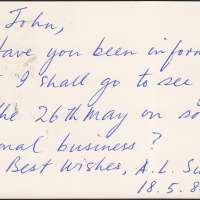 John,
have you been inform
I shall go to see
the 26th May on so
nal business?
Best Wishes, A. L. Su
18.5.8